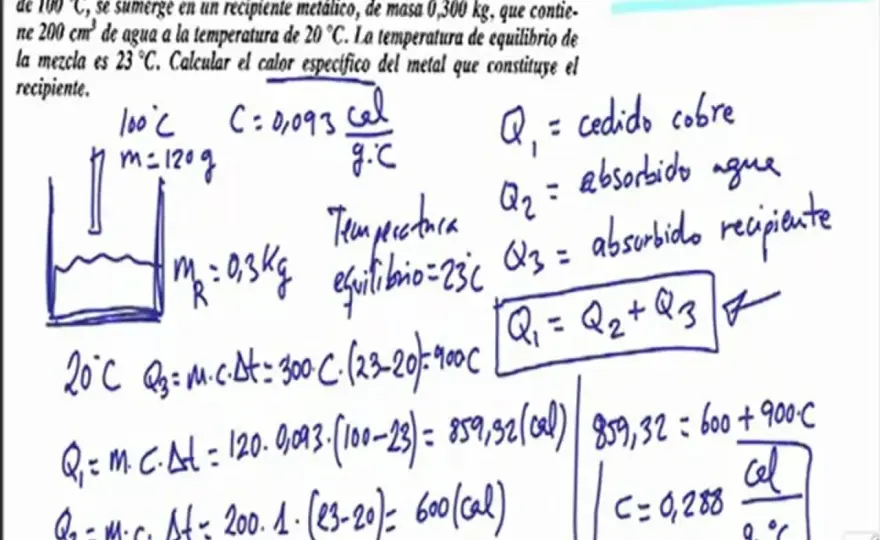 de 100 °C, se sumerge en un recipiente metálico, de masa 0,300 kg, que contie-
ne 200 cm³ de agua a la temperatura de 20 °C. La temperatura de equilibrio de
la mezcla es 23 °C. Calcular el calor específico del metal que constituye el
recipiente.
100°C C=0,093 cal/g·°C
m=120g
Q1 = cedido cobre
Q2 = absorbido agua
Q3 = absorbido recipiente
mR=0,3Kg
Temperatura
equilibrio=23°C
Q1 = Q2 + Q3
20°C Q3=m.c.Δt=300·C·(23-20)=900C
Q1=m.C.Δt=120·0,093·(100-23)=859,32(cal)
Q2=m.c.Δt=200·1·(23-20)=600(cal)
859,32=600+900·C
C=0,288 cal/g·°C